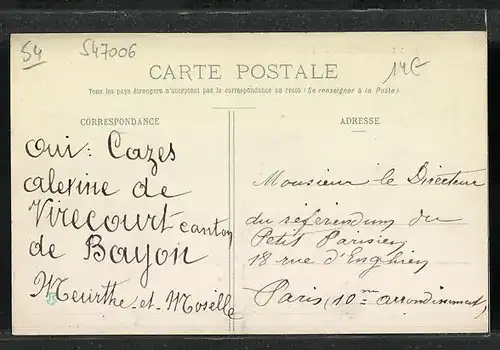 54
S47006
14E
CARTE POSTALE
Tous les pays étrangers n'acceptent pas la correspondance au recto (Se renseigner à la Poste)
CORRESPONDANCE
oui: Cazes
alexine de
Virecourt canton
de Bayon
Meurthe-et-Moselle
ADRESSE
Monsieur le Directeur
du référendum du
Petit Parisien
18 rue d'Enghien
Paris, (10me arrondissement)